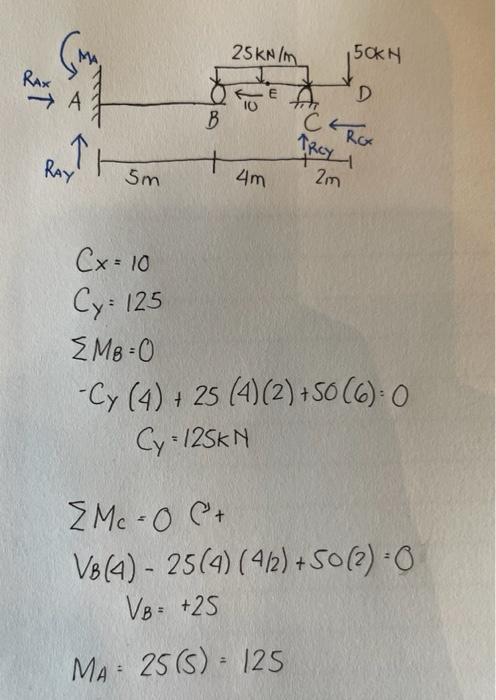 MA
25KN/m
50KN
RAX
A
10
E
D
B
C
RCX
RCY
RAY
5m
4m
2m
Cx = 10
Cy = 125
ΣMB = 0
-Cy (4) + 25 (4)(2) + 50 (6) = 0
Cy = 125kN
ΣMc = 0 +
VB(4) - 25(4)(4/2) + 50(2) = 0
VB = +25
MA = 25(5) = 125